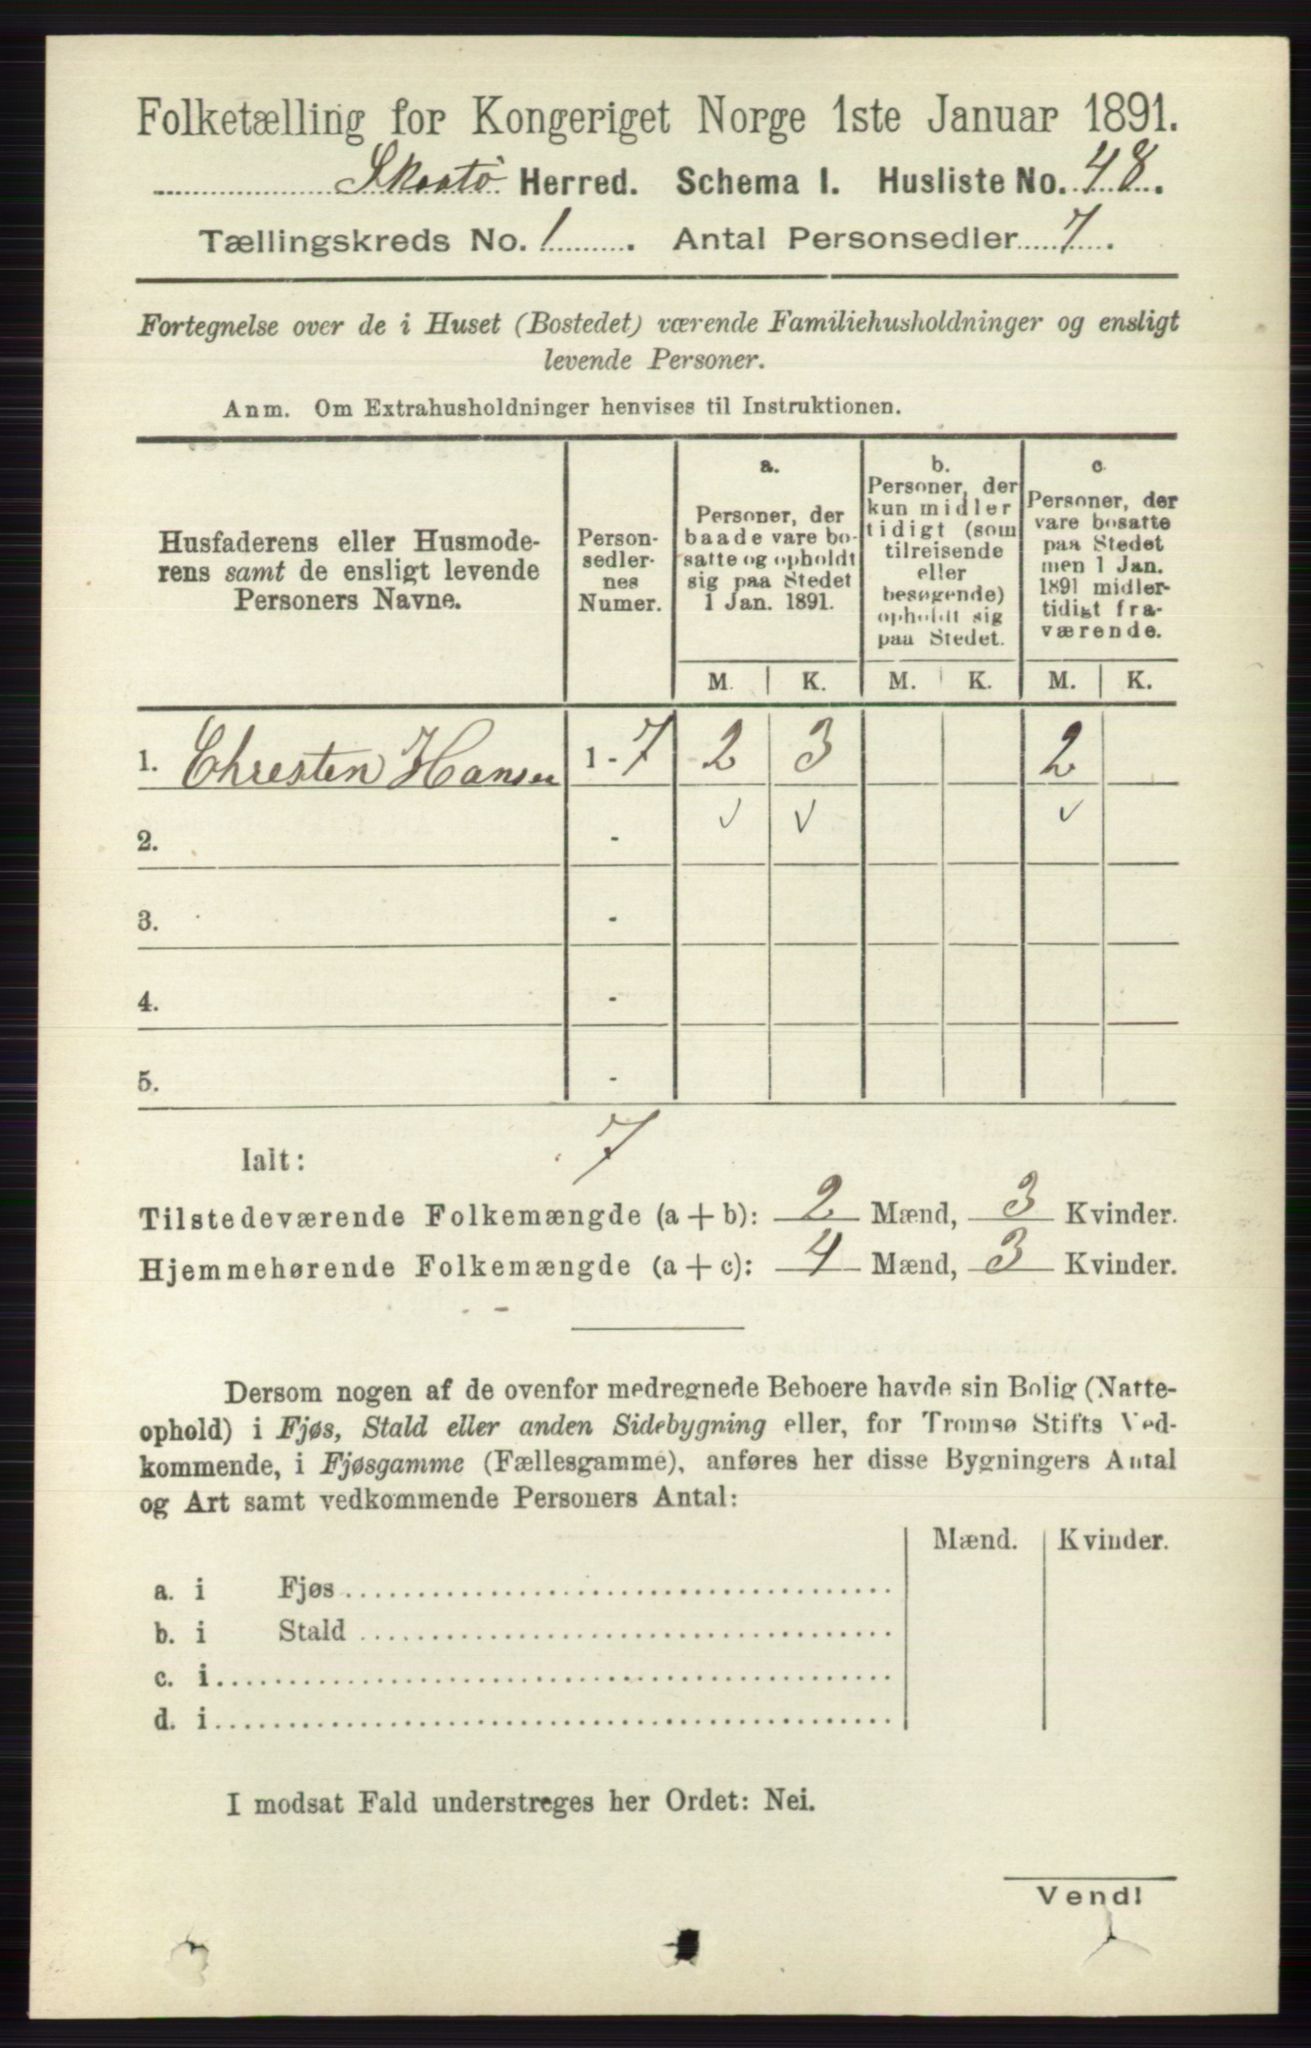 Folketælling for Kongeriget Norge 1ste Januar 1891.
Skaatö Herred. Schema I. Husliste No. 48.
Tællingskreds No. 1. Antal Personsedler 7.
Fortegnelse over de i Huset (Bostedet) værende Familiehusholdninger og ensligt
levende Personer.
Anm. Om Extrahusholdninger henvises til Instruktionen.
Husfaderens eller Husmode-
rens samt de ensligt levende
Personers Navne.
Person-
sedler-
nes
Numer.
a.
Personer, der
baade vare bo-
satte og opholdt
sig paa Stedet
1 Jan. 1891.
b.
Personer, der
kun midler
tidigt (som
tilreisende
eller
besøgende)
opholdt sig
paa Stedet.
c
Personer, der
vare bosatte
paa Stedet
men 1 Jan.
1891 midler-
tidigt fra-
værende.
M. K. M. K. M. K.
1. Chresten Hansen 1 - 7 2 3 2
2. - ✓ ✓ ✓
3. -
4. -
5. -
Ialt: 7
Tilstedeværende Folkemængde (a + b): 2 Mænd, 3 Kvinder.
Hjemmehørende Folkemængde (a + c): 4 Mænd, 3 Kvinder.
Dersom nogen af de ovenfor medregnede Beboere havde sin Bolig (Natte-
ophold) i Fjøs, Stald eller anden Sidebygning eller, for Tromsø Stifts Ved-
kommende, i Fjøsgamme (Fællesgamme), anføres her disse Bygningers Antal
og Art samt vedkommende Personers Antal:
Mænd. Kvinder.
a. i Fjøs
b. i Stald
c. i
d. i
I modsat Fald understreges her Ordet: Nei.
Vend!